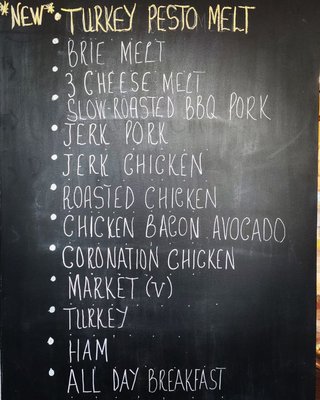 *NEW* • TURKEY PESTO MELT
• BRIE MELT
• 3 CHEESE MELT
• SLOW-ROASTED BBQ PORK
• JERK PORK
• JERK CHICKEN
• ROASTED CHICKEN
• CHICKEN BACON AVOCADO
• CORONATION CHICKEN
• MARKET (V)
• TURKEY
• HAM
• ALL DAY BREAKFAST